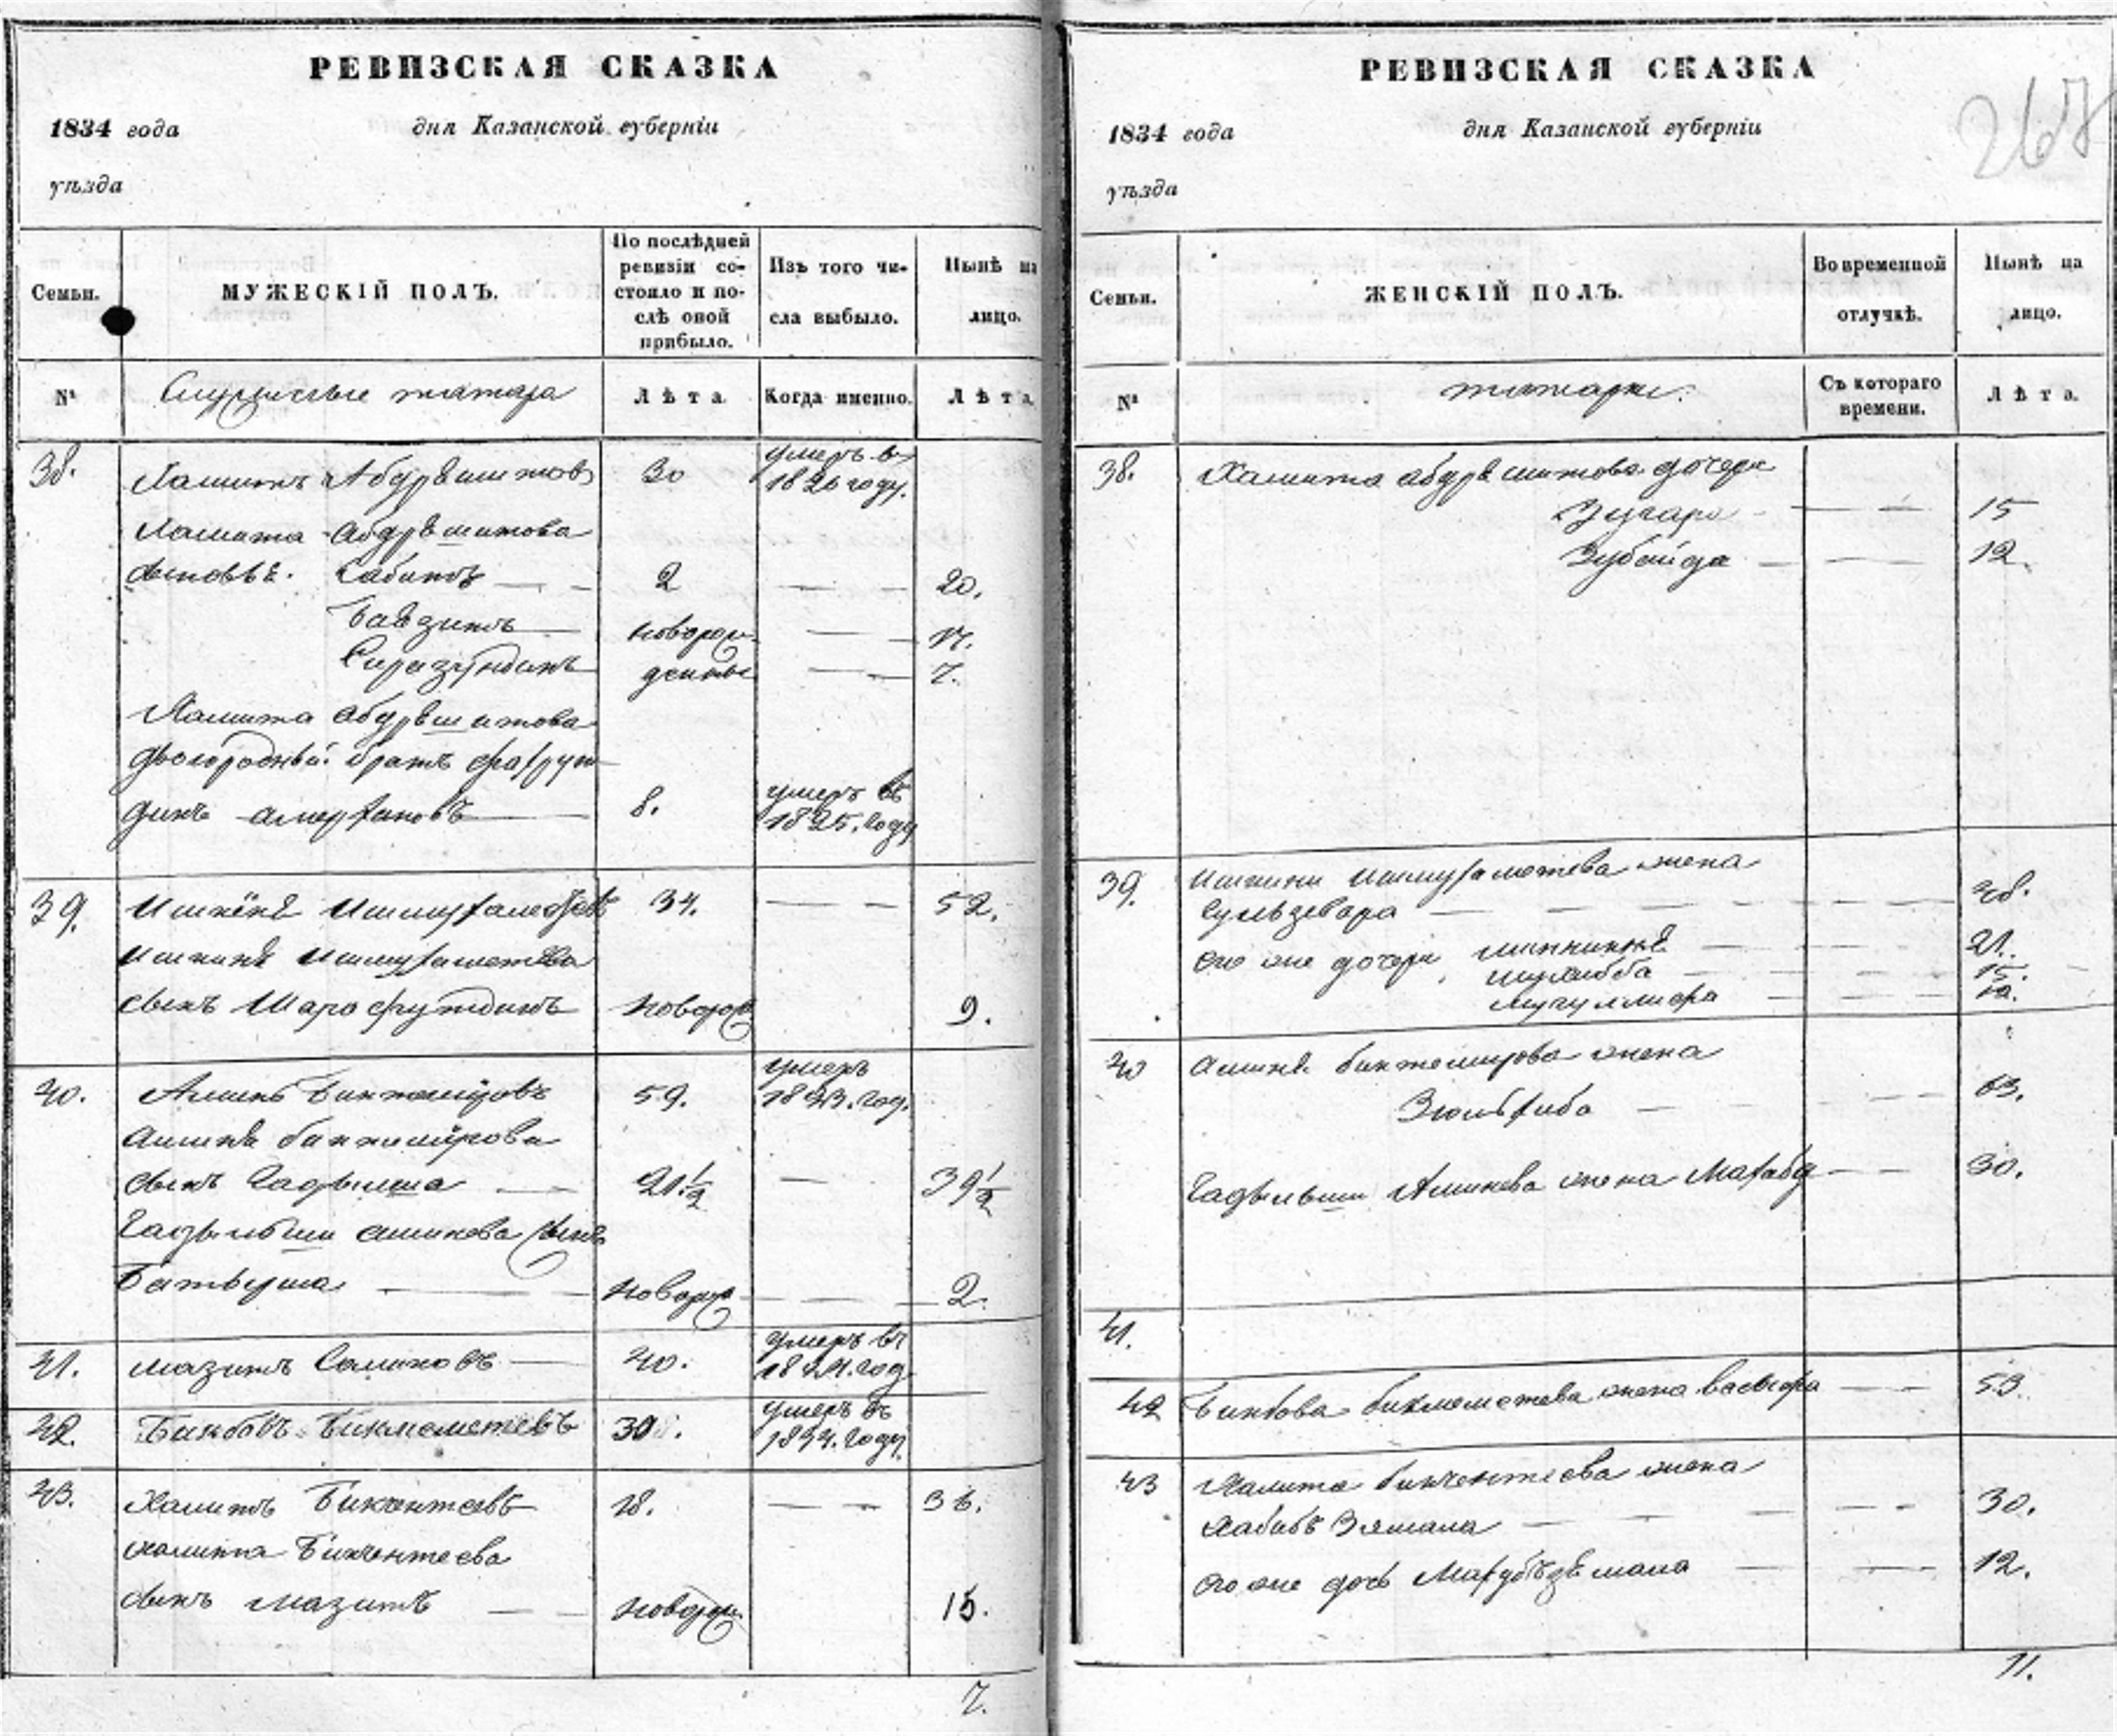 РЕВИЗСКАЯ СКАЗКА
1834 года
дня Казанской губерніи
уѣзда
Семьи.
МУЖЕСКІЙ ПОЛЪ.
По послѣдней
ревизіи со-
стояло и по-
слѣ оной
прибыло.
Изъ того чи-
сла выбыло.
Нынѣ на
лицо.
№
Служилые татара
Лѣта
Когда именно.
Лѣта
38.
Хамитъ Абдрешитовъ 30 умеръ въ
1820 году.
Хамита Абдрешитова
сыновья. Сабитъ 2 20.
новорож 17.
Сиразутдинъ денные 7.
Хамита абдрешитова
двоюродный братъ Фахрут
динъ амерхановъ 8. умеръ въ
1825. году
39. 34. 52.
сынъ Шарафутдинъ новорож 9.
40. Аминь Биктемировъ 59. умеръ
1833. год.
Аминя биктемирова
сынъ Гадыльша 21 1/2 39 1/2
Гадыльши аминева сынъ
Батырша новорож 2.
41. Мазитъ Салиховъ 40. умеръ въ
год
42. Бикбовъ Бикмеметевъ 39. умеръ въ
1834. году
43. Халитъ Бикчентеевъ 18. 36.
халита Бикчентеева
сынъ мазитъ новорож. 15.
7.
РЕВИЗСКАЯ СКАЗКА
267
1834 года
дня Казанской губерніи
уѣзда
Семьи.
ЖЕНСКІЙ ПОЛЪ.
Во временной
отлучкѣ.
Нынѣ на
лицо.
№
татарки.
Съ котораго
времени.
Лѣта.
38. Хамита абдрешитова дочери
Зугара 15
Зубайда 12.
39. жена
Гульзевара 48.
его же дочери 21.
мухибба 15.
10.
40 Аминя биктемирова жена
Зюльхиба 63.
Гадыльши Аминева жена 30.
41.
42 Бикбова бикмеметева жена 53.
43 Халита бикчентеева жена
Хабибъ Зямала 30.
его же дочь 12.
11.